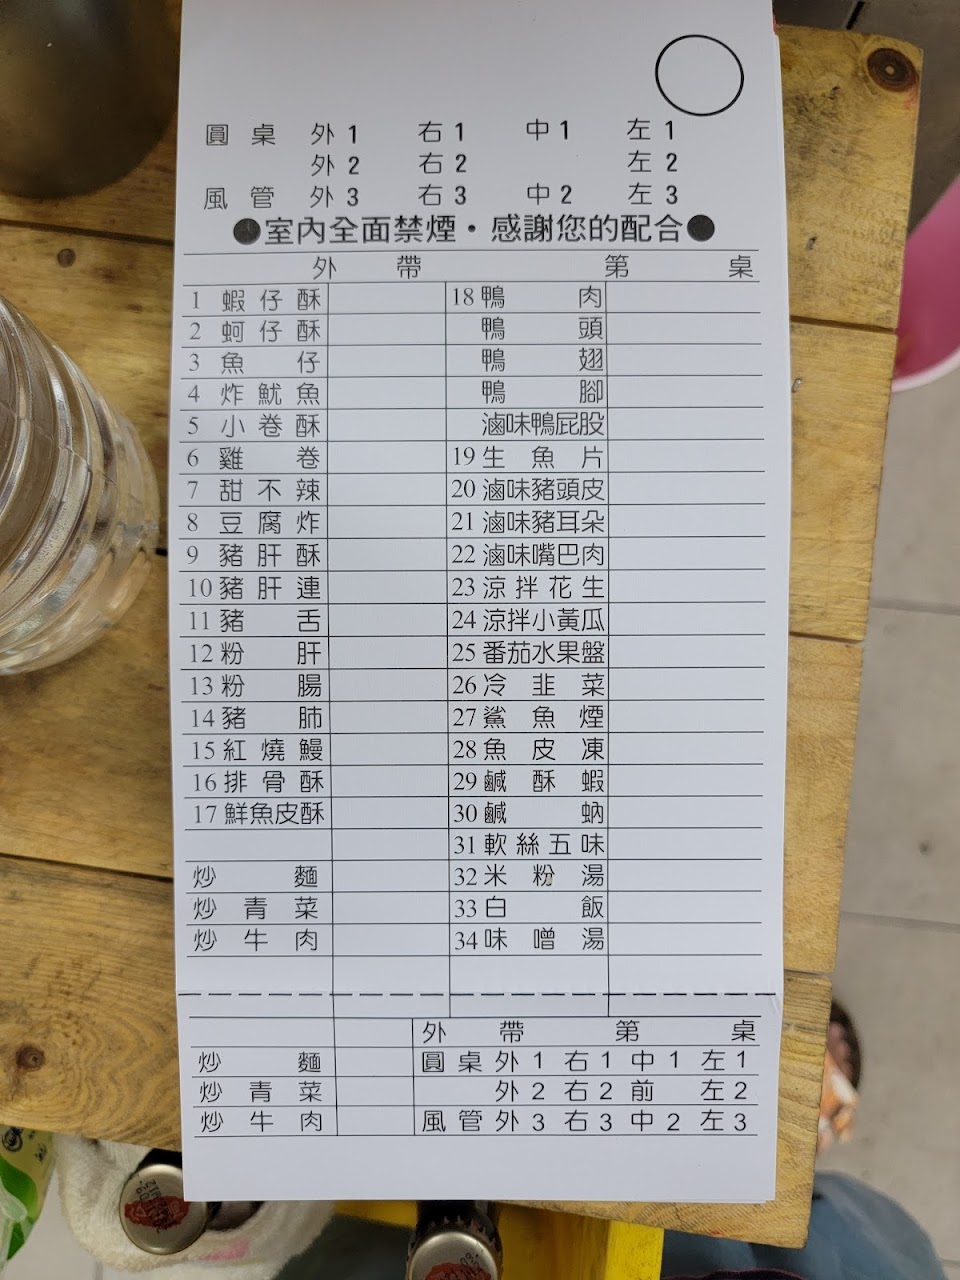 圓桌 外1 右1 中1 左1
外2 右2 左2
風管 外3 右3 中2 左3
●室內全面禁煙・感謝您的配合●
外帶 第 桌
1 蝦仔酥 18 鴨肉
2 蚵仔酥 鴨頭
3 魚仔 鴨翅
4 炸魷魚 鴨腳
5 小卷酥 滷味鴨屁股
6 雞卷 19 生魚片
7 甜不辣 20 滷味豬頭皮
8 豆腐炸 21 滷味豬耳朵
9 豬肝酥 22 滷味嘴巴肉
10 豬肝連 23 涼拌花生
11 豬舌 24 涼拌小黃瓜
12 粉肝 25 番茄水果盤
13 粉腸 26 冷韭菜
14 豬肺 27 鯊魚煙
15 紅燒鰻 28 魚皮凍
16 排骨酥 29 鹹酥蝦
17 鮮魚皮酥 30 鹹蚋
31 軟絲五味
炒麵 32 米粉湯
炒青菜 33 白飯
炒牛肉 34 味噌湯
外帶 第 桌
炒麵 圓桌 外1 右1 中1 左1
炒青菜 外2 右2 前 左2
炒牛肉 風管 外3 右3 中2 左3